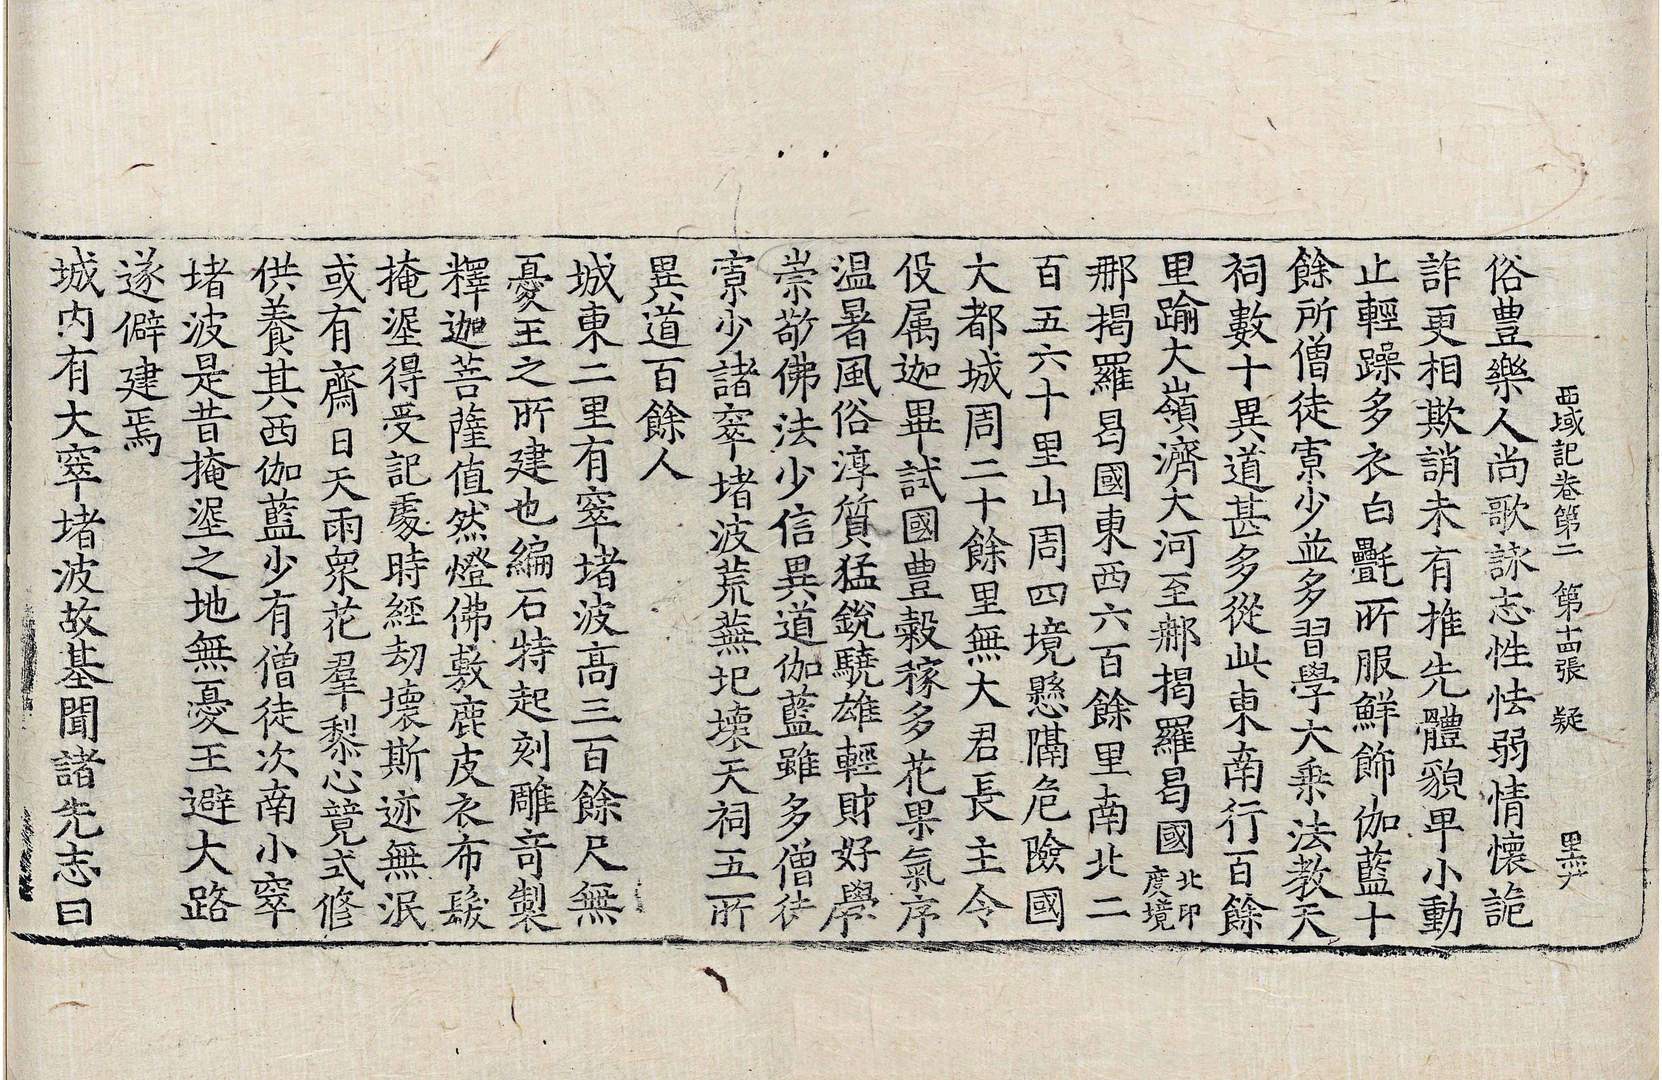 西域記卷第二 第十四張 疑
俗豊樂人尚歌詠志性怯弱情懷詭
詐更相欺誚未有推先體貌卑小動
止輕躁多衣白㲲所服鮮飾伽藍十
餘所僧徒寡少並多習學大乗法教天
祠數十異道甚多從此東南行百餘
里踰大嶺濟大河至那揭羅曷國北印度境
那揭羅曷國東西六百餘里南北二
百五六十里山周四境懸隔危險國
大都城周二十餘里無大君長主令
役属迦畢試國豊穀稼多花果氣序
温暑風俗淳質猛銳驍雄輕財好學
崇敬佛法少信異道伽藍雖多僧徒
寡少諸窣堵波荒蕪圮壞天祠五所
異道百餘人
城東二里有窣堵波高三百餘尺無
憂王之所建也編石特起刻雕竒製
釋迦菩薩值然燈佛敷鹿皮衣布髮
掩埿得受記處時經劫壞斯迹無泯
或有齋日天雨衆花羣黎心競式修
供養其西伽藍少有僧徒次南小窣
堵波是昔掩埿之地無憂王避大路
遂僻建焉
城内有大窣堵波故基聞諸先志曰